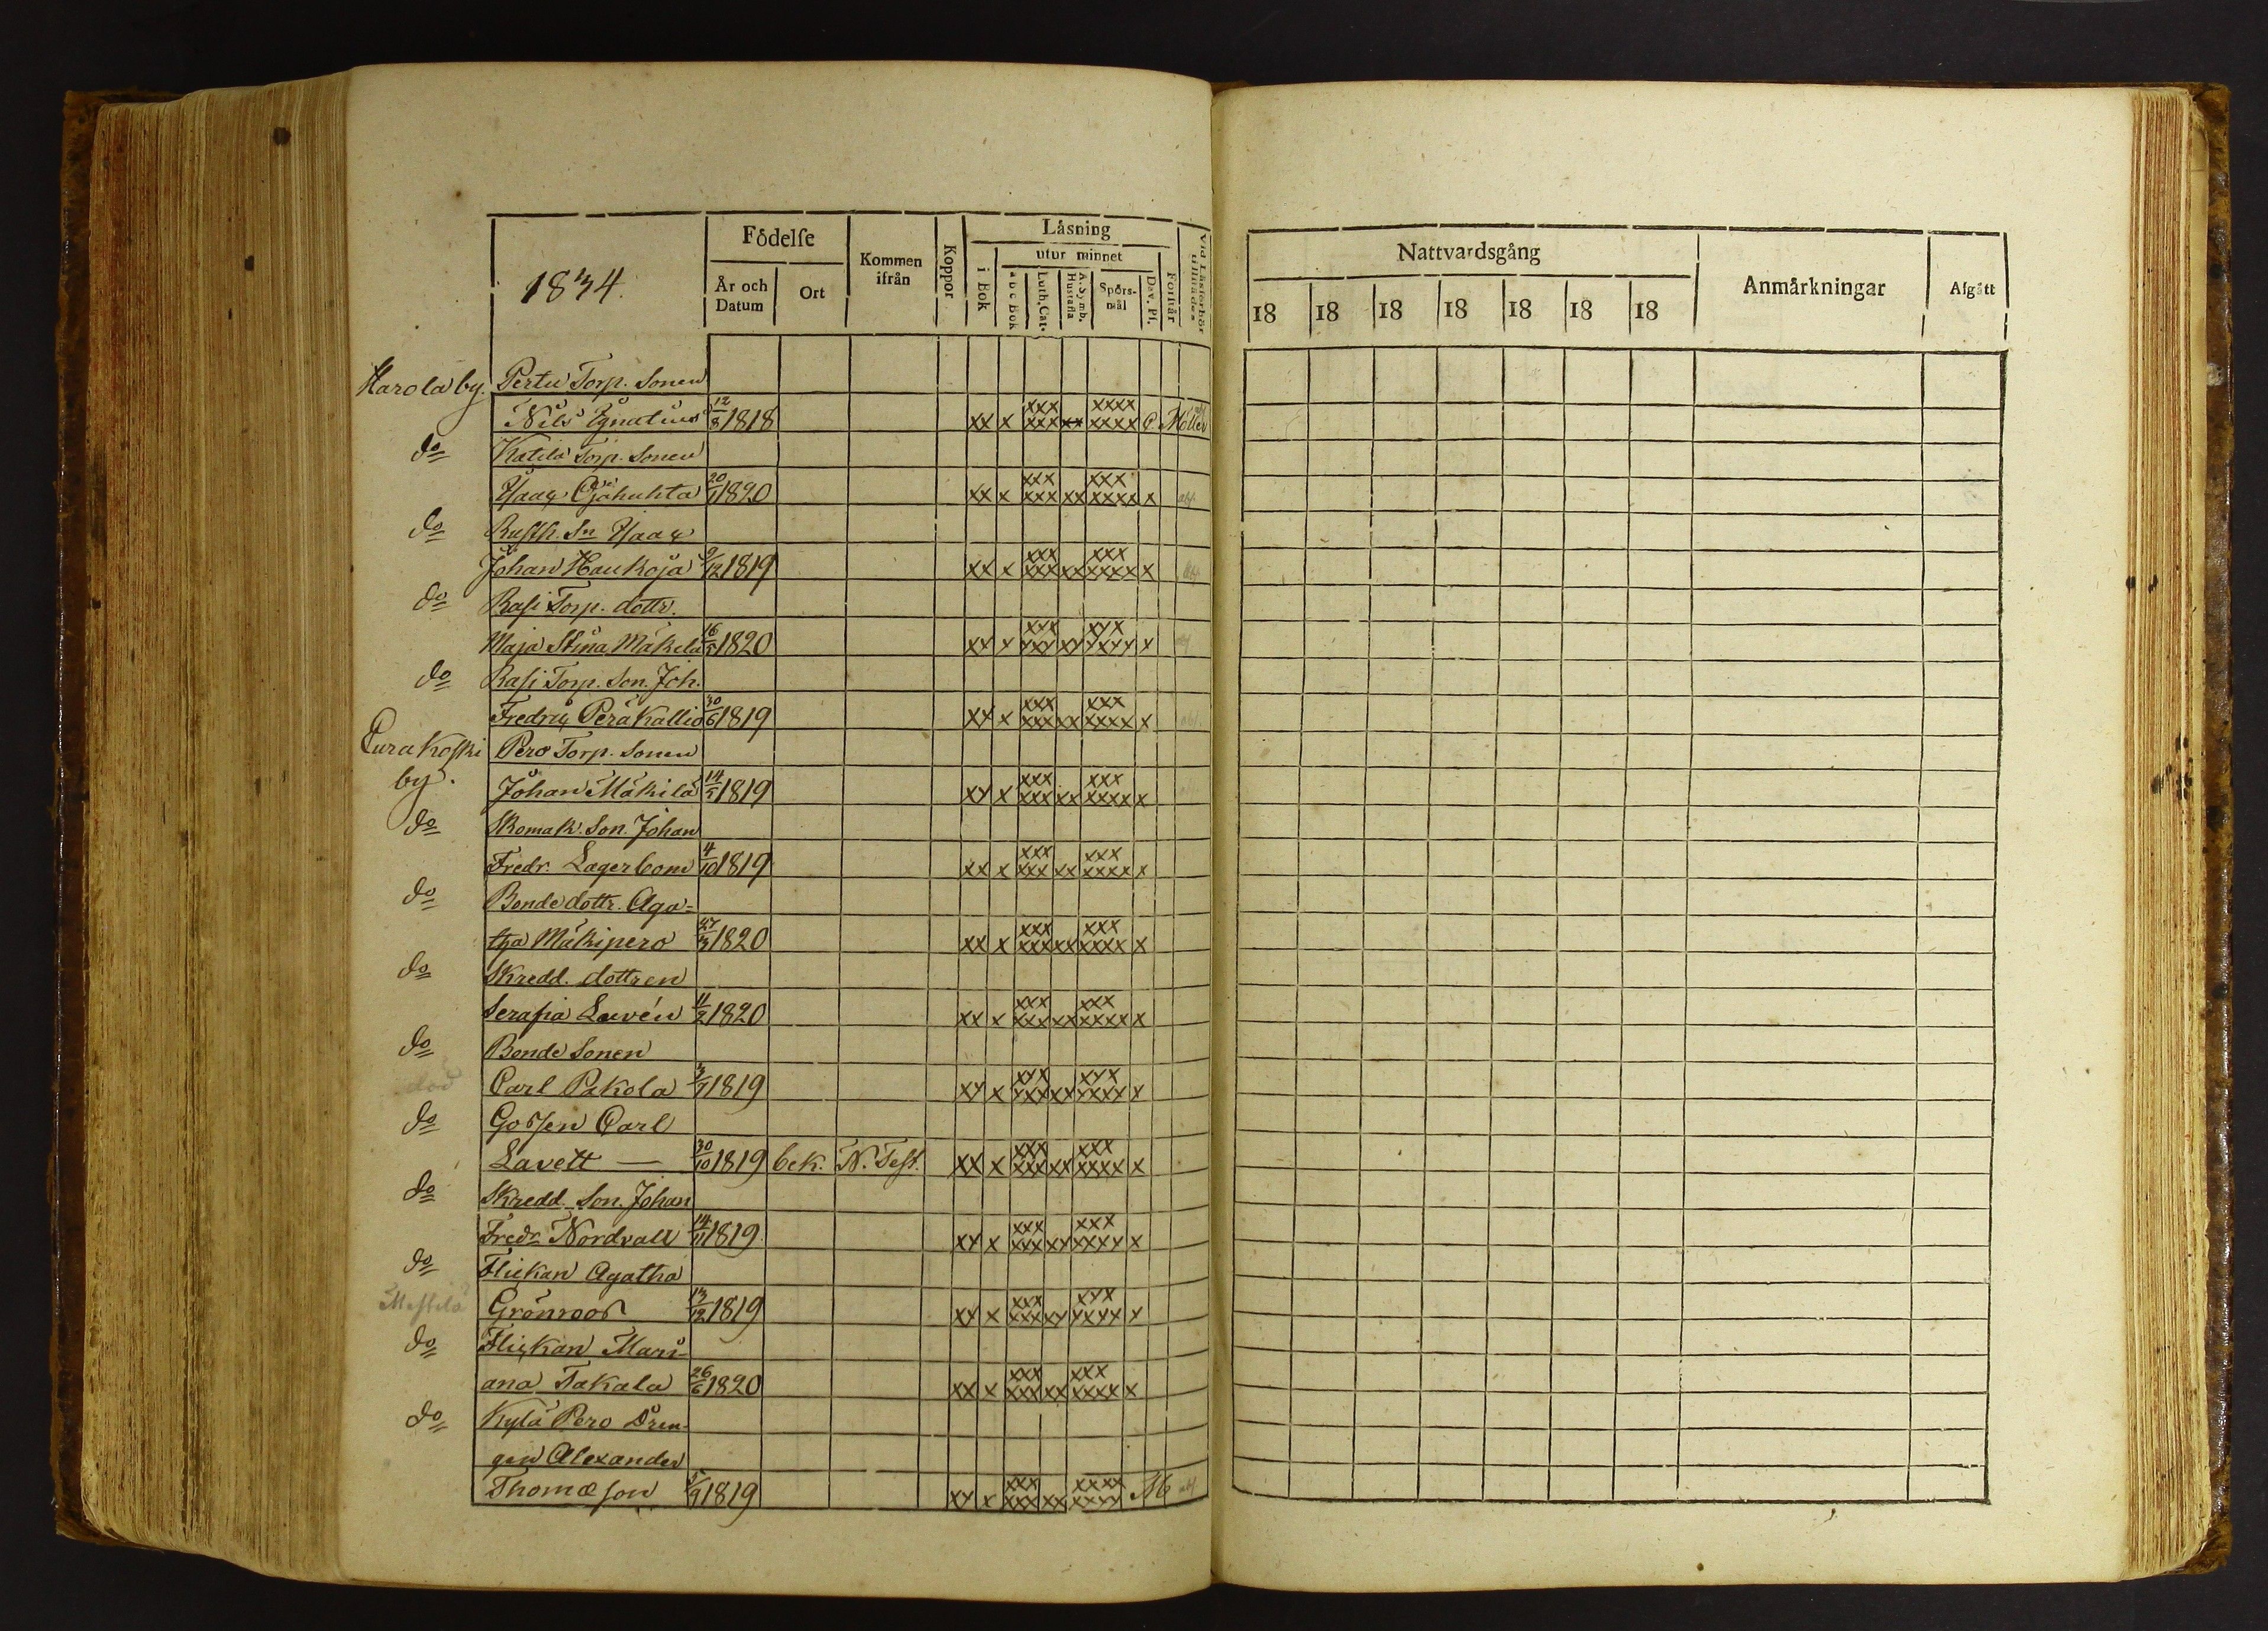 1834.
Födelse
År och Datum
Ort
Kommen ifrån
Koppor
Läsning
i Bok
utur minnet
a b c Bok
Luth. Cat.
A. Symb. Hustafla
Spörs-mål
Dav. Ps.
Förhår
Vid Läsförhör tillstädes
Nattvardsgång
18 18 18 18 18 18 18
Anmärkningar
Afgått
Harola by. Pertu Torp. Sonen
Nils Ignatius 12/8 1818 xx x xxx xxx xx xxxx xxxx Möller
do Katila Torp. Sonen
Isaac Ojahuhta 20/1 1820 xx x xxx xxx xx xxx xxxx x
do Rusth. Sn Isaac
Johan Haukoja 9/12 1819 xx x xxx xxx xx xxx xxxx x
do Rasi Torp. dottr.
Maja Stina Mäkelä 16/5 1820 xx x xxx xxx xx xxx xxxx x
do Rasi Torp. Son. Joh.
Fredric Peräkallio 30/6 1819 xx x xxx xxx xx xxx xxxx x
Eurakoski by. Pero Torp. Sonen
Johan Mäkilä 14/5 1819 xx x xxx xxx xx xxx xxxx x
do Skomak. Son. Johan
Fredr. Lagerbom 4/10 1819 xx x xxx xxx xx xxx xxxx x
do Bonde dottr. Aga=
tha Mäkipero 27/3 1820 xx x xxx xxx xx xxx xxxx x
do Skredd. dottren
Serafia Lavén 11/2 1820 xx x xxx xxx xx xxx xxxx x
do Bonde Sonen
död Carl Pakola 3/9 1819 xx x xxx xxx xx xxx xxxx x
do Gossen Carl
Lavett — 30/10 1819 bek. N. Test. xx x xxx xxx xx xxx xxxx x
do Skredd. Son. Johan
Fredr Nordvall 14/11 1819. xx x xxx xxx xx xxx xxxx x
do Flickan Agatha
Mestilä Grönroos 13/12 1819 xx x xxx xxx xx xxx xxxx x
do Flickan Mari-
ana Takala 26/6 1820 xx x xxx xxx xx xxx xxxx x
do Kylä Pero Dren-
gen Alexander
Thomæson 5/9 1819 xx x xxx xxx xx xxxx xxxx M